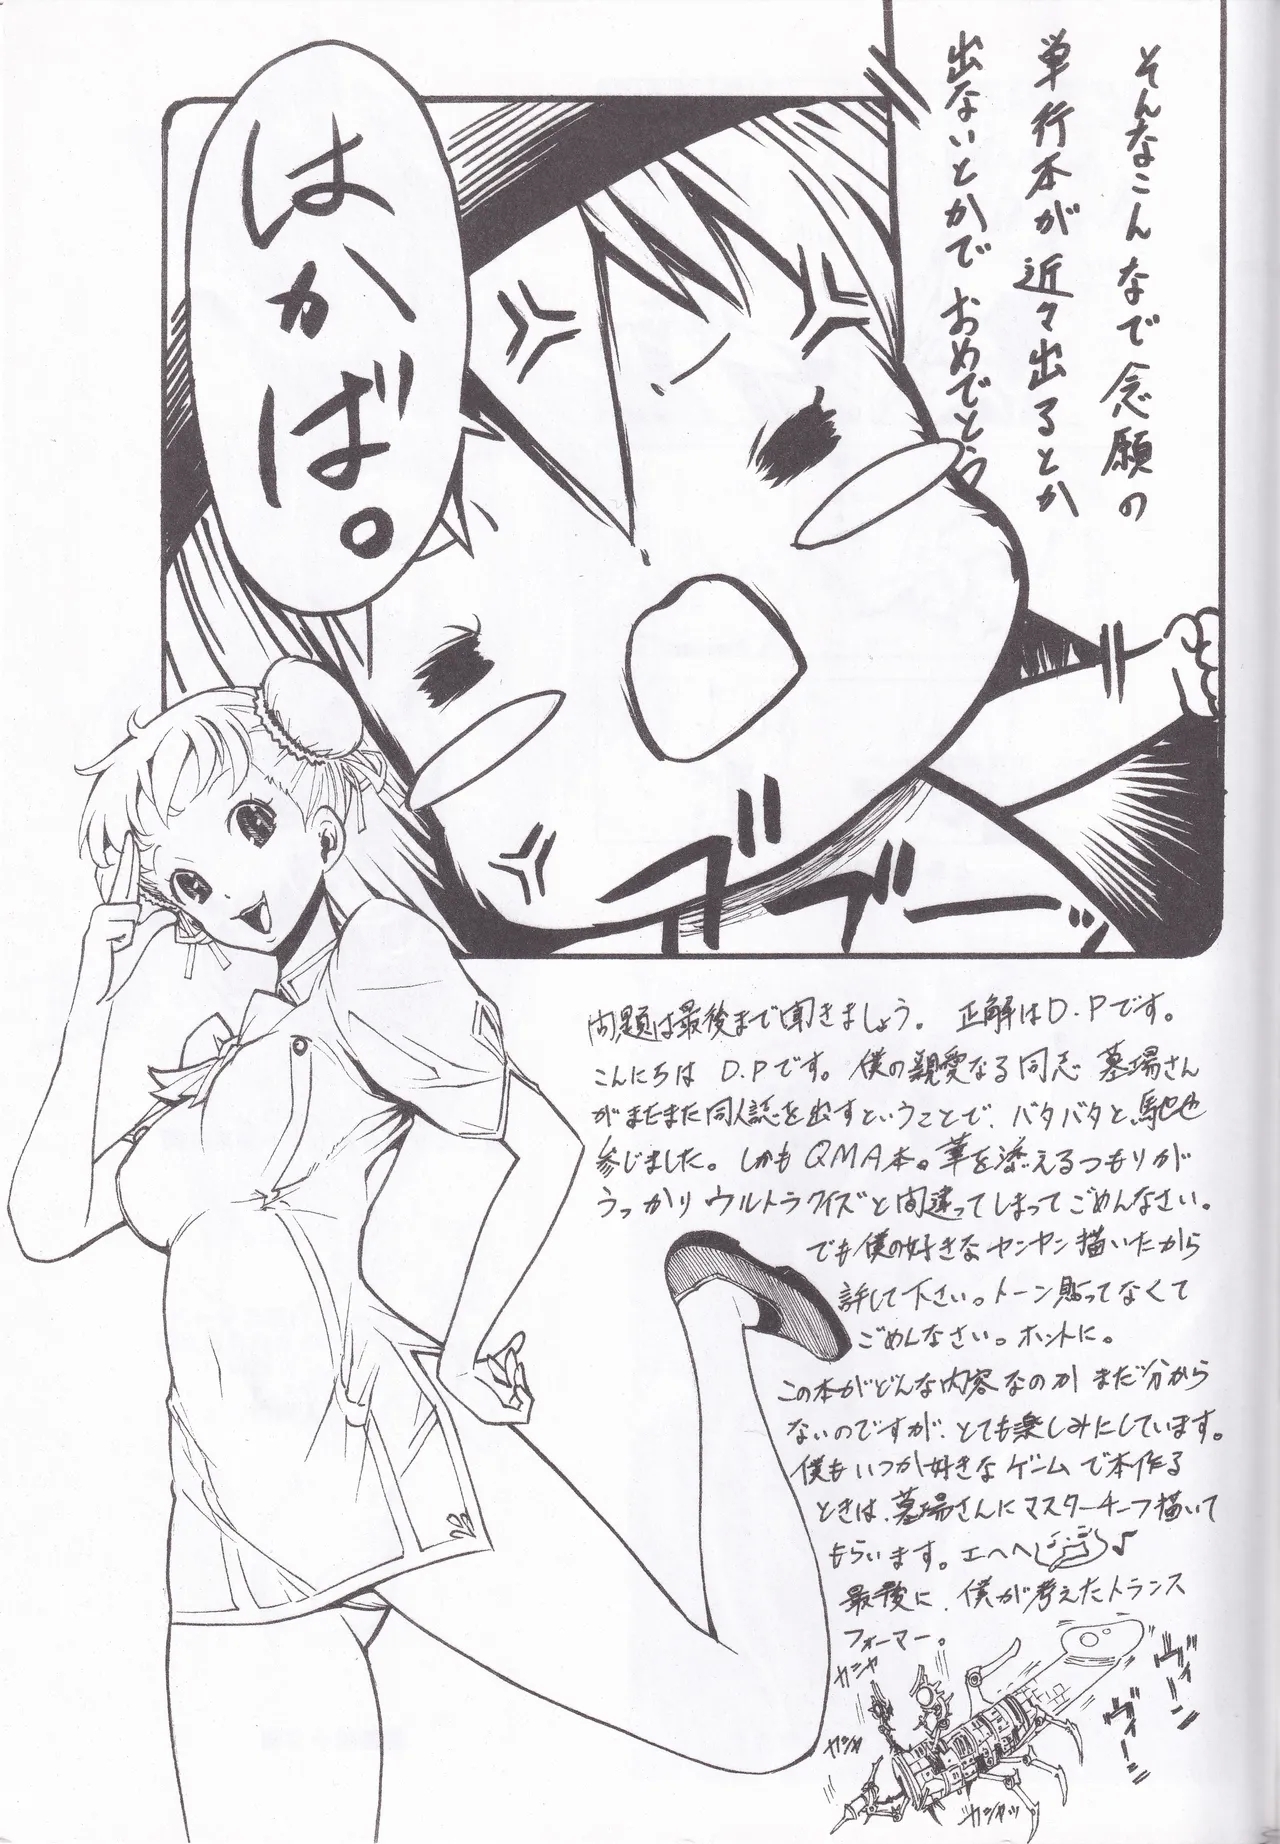 そんなこんなで念願の
単行本が近々出るとか
出ないとかでおめでとう
はかば。
ブブーッ
問題は最後まで聞きましょう。正解はD.Pです。
こんにちは D.Pです。僕の親愛なる同志 墓場さん
がまたまた同人誌を出すということで、バタバタと馳せ
参じました。しかもQMA本。華を添えるつもりが
うっかりウルトラクイズと間違ってしまってごめんなさい。
でも僕の好きなヤンヤン描いたから
許して下さい。トーン貼ってなくて
ごめんなさい。ホントに。
この本がどんな内容なのかまだ分から
ないのですが、とても楽しみにしています。
僕もいつか好きなゲームで本作る
ときは、墓場さんにマスターチーフ描いて
もらいます。エヘヘ♪
最後に、僕が考えたトランス
フォーマー。
ガシャ
ガシャ
ガシャッ
ヴィーン
ヴィーン